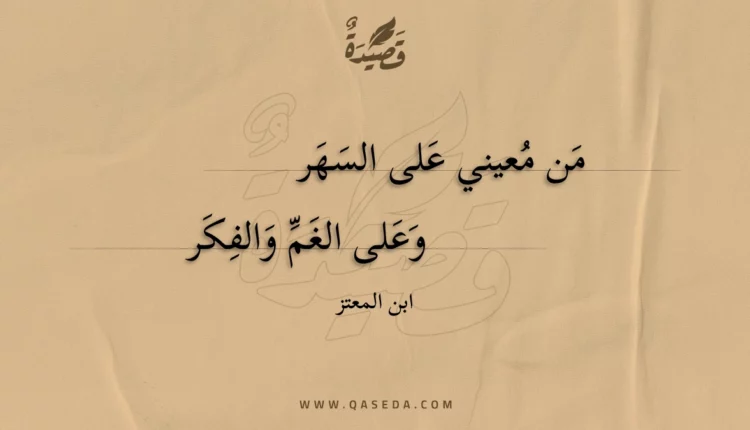 قَصِيْدَةٌ
مَن مُعيني عَلى السَهَر
وَعَلى الغَمِّ وَالفِكَر
ابن المعتز
WWW.QASEDA.COM